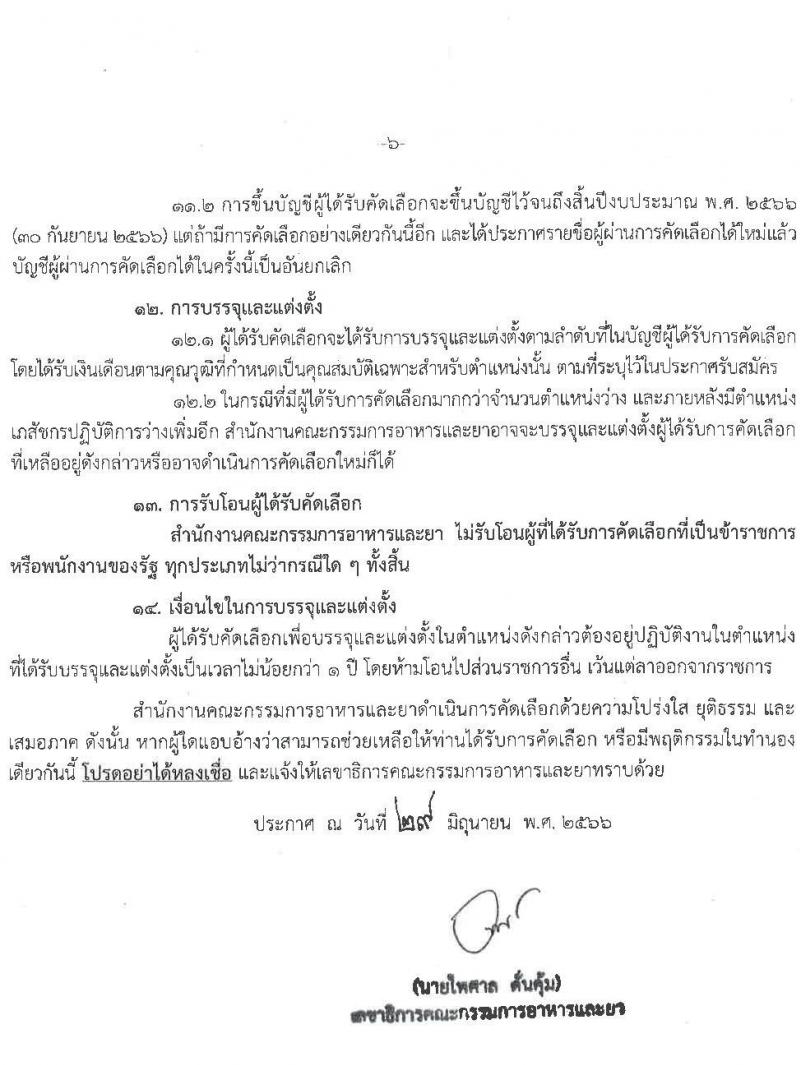 -๖-
๑๑.๒ การขึ้นบัญชีผู้ได้รับคัดเลือกจะขึ้นบัญชีไว้จนถึงสิ้นปีงบประมาณ พ.ศ. ๒๕๖๖
(๓๐ กันยายน ๒๕๖๖) แต่ถ้ามีการคัดเลือกอย่างเดียวกันนี้อีก และได้ประกาศรายชื่อผู้ผ่านการคัดเลือกได้ใหม่แล้ว
บัญชีผู้ผ่านการคัดเลือกได้ในครั้งนี้เป็นอันยกเลิก
๑๒. การบรรจุและแต่งตั้ง
๑๒.๑ ผู้ได้รับคัดเลือกจะได้รับการบรรจุและแต่งตั้งตามลำดับที่ในบัญชีผู้ได้รับการคัดเลือก
โดยได้รับเงินเดือนตามคุณวุฒิที่กำหนดเป็นคุณสมบัติเฉพาะสำหรับตำแหน่งนั้น ตามที่ระบุไว้ในประกาศรับสมัคร
๑๒.๒ ในกรณีที่มีผู้ได้รับการคัดเลือกมากกว่าจำนวนตำแหน่งว่าง และภายหลังมีตำแหน่ง
เภสัชกรปฏิบัติการว่างเพิ่มอีก สำนักงานคณะกรรมการอาหารและยาอาจจะบรรจุและแต่งตั้งผู้ได้รับการคัดเลือก
ที่เหลืออยู่ดังกล่าวหรืออาจดำเนินการคัดเลือกใหม่ก็ได้
๑๓. การรับโอนผู้ได้รับคัดเลือก
สำนักงานคณะกรรมการอาหารและยา ไม่รับโอนผู้ที่ได้รับการคัดเลือกที่เป็นข้าราชการ
หรือพนักงานของรัฐ ทุกประเภทไม่ว่ากรณีใด ๆ ทั้งสิ้น
๑๔. เงื่อนไขในการบรรจุและแต่งตั้ง
ผู้ได้รับคัดเลือกเพื่อบรรจุและแต่งตั้งในตำแหน่งดังกล่าวต้องอยู่ปฏิบัติงานในตำแหน่ง
ที่ได้รับบรรจุและแต่งตั้งเป็นเวลาไม่น้อยกว่า ๑ ปี โดยห้ามโอนไปส่วนราชการอื่น เว้นแต่ลาออกจากราชการ
สำนักงานคณะกรรมการอาหารและยาดำเนินการคัดเลือกด้วยความโปร่งใส ยุติธรรม และ
เสมอภาค ดังนั้น หากผู้ใดแอบอ้างว่าสามารถช่วยเหลือให้ท่านได้รับการคัดเลือก หรือมีพฤติกรรมในทำนอง
เดียวกันนี้ โปรดอย่าได้หลงเชื่อ และแจ้งให้เลขาธิการคณะกรรมการอาหารและยาทราบด้วย
ประกาศ ณ วันที่ ๒๙ มิถุนายน พ.ศ. ๒๕๖๖
(นายไพศาล ดั่นคุ้ม)
เลขาธิการคณะกรรมการอาหารและยา